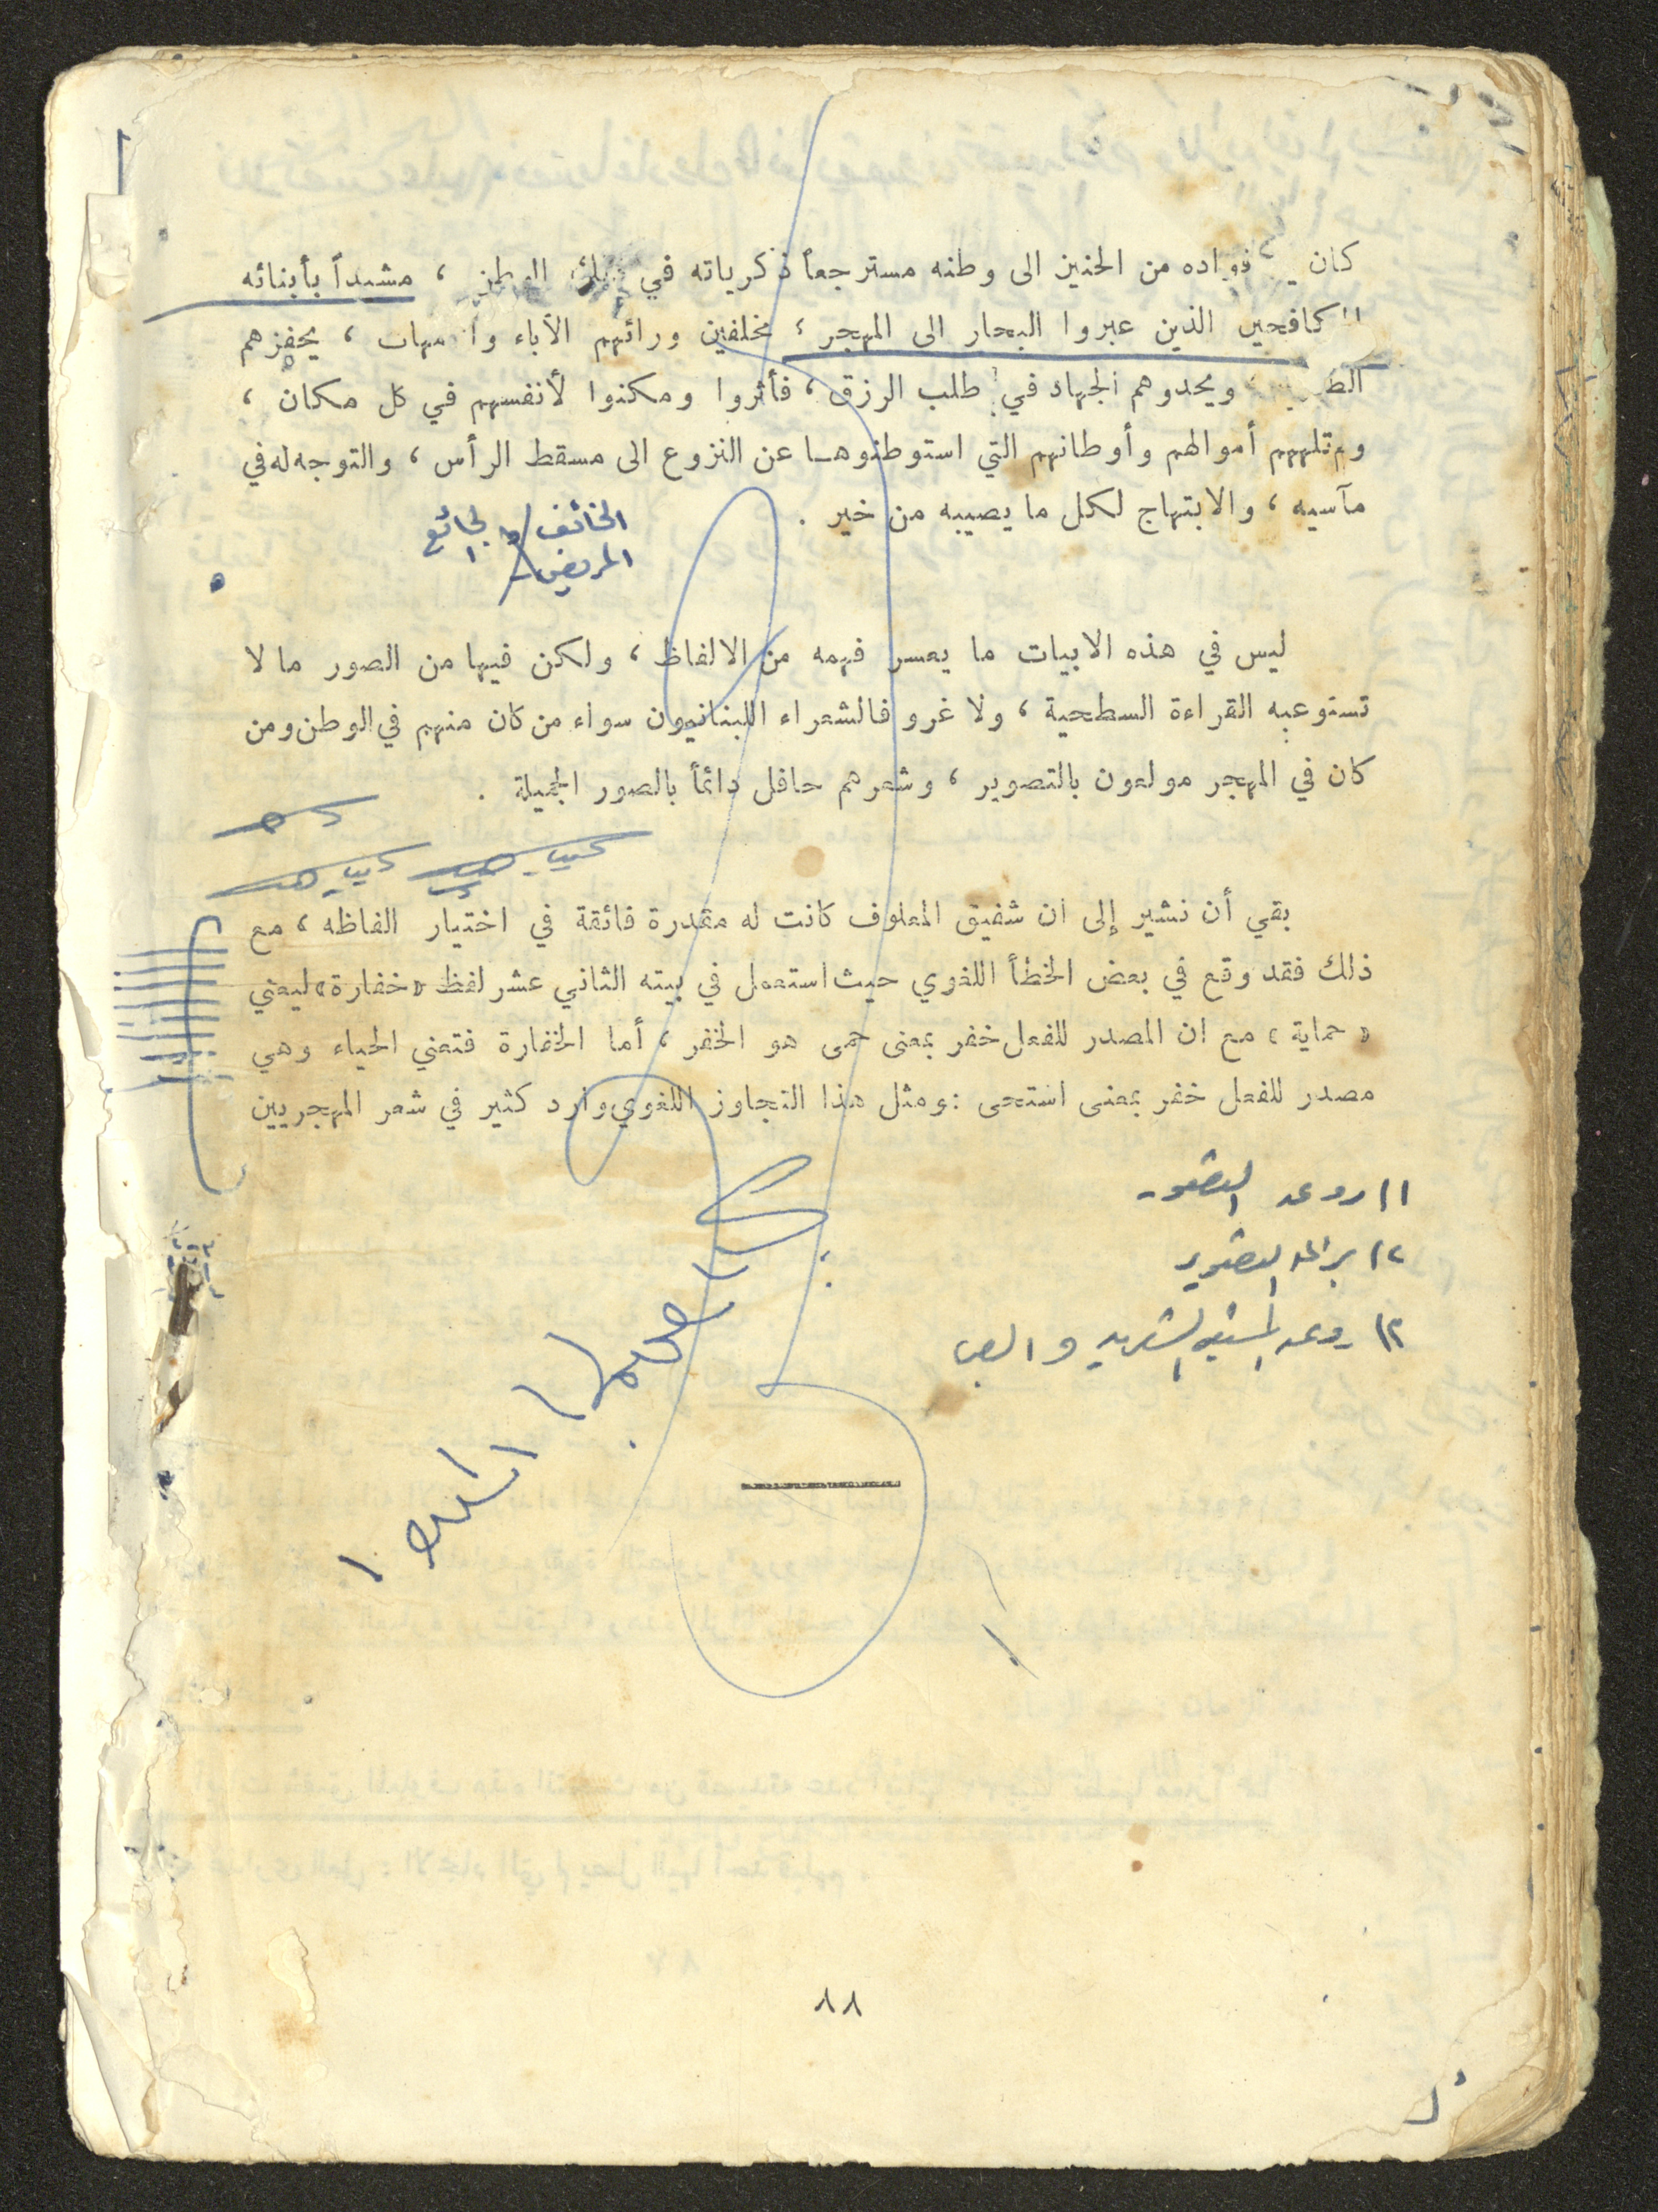 كان فؤاده من الحنين الى وطنه مسترجعاً ذكرياته في ذلك الوطن ، مشيداً بأبنائه
المكافحين الذين عبروا البحار الى المهجر ، مخلفين ورائهم الآباء والامهات ، يحفزهم
ويحدوهم الجهاد في طلب الرزق ، فأثروا ومكنوا لأنفسهم في كل مكان ،
ولم تلههم أموالهم وأوطانهم التي استوطنوها عن النزوع الى مسقط الرأس ، والتوجه له في
مآسيه ، والابتهاج لكل ما يصيبه من خير .
الخائف / الجائع
المريض
ليس في هذه الابيات ما يعسر فهمه من الالفاظ ، ولكن فيها من الصور ما لا
تستوعبه القراءة السطحية ، ولا غرو فالشعراء اللبنانيون سواء من كان منهم في الوطن ومن
كان في المهجر مولعون بالتصوير ، وشعرهم حافل دائماً بالصور الجميلة .
بقي أن نشير إلى ان شفيق المعلوف كانت له مقدرة فائقة في اختيار الفاظه ، مع
ذلك فقد وقع في بعض الخطأ اللغوي حيث استعمل في بيته الثاني عشر لفظ « خفارة » ليعني
« حماية » مع ان المصدر للفعل خفر بمعنى حمى هو الخفر ، أما الخفارة فتعني الحياء وهي
مصدر للفعل خفر بمعنى استحى : ومثل هذا التجاوز اللغوي وارد كثير في شعر المهجريين
١)
٢) التصوير
٣)
٨٨